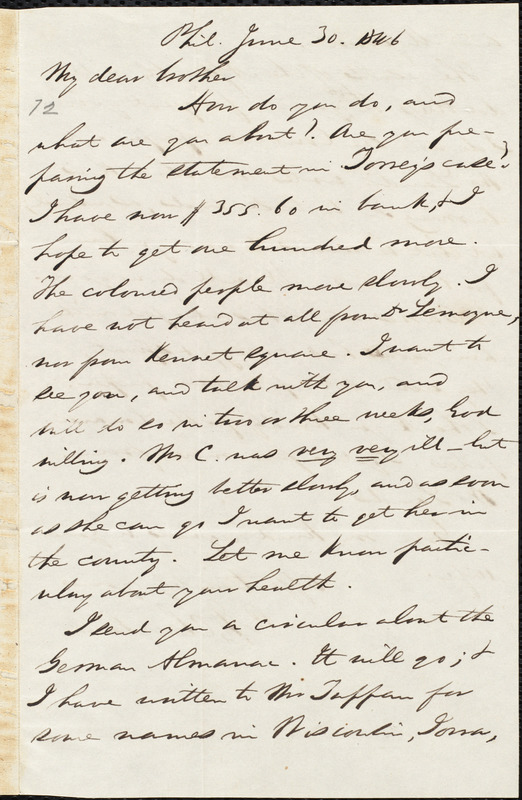 Phil. June 30. 1846
My dear brother
72
How do you do, and
what are you about? Are you pre-
paring the statement in Torrey's case?
I have now $355.60 in bank, & I
hope to get one hundred more.
The coloured people move slowly. I
have not heard at all from Dr Lemoyne,
nor from Kennet Square. I want to
see you, and talk with you, and
will do so in two or three weeks, God
willing. Mrs C. was very very ill - but
is now getting better slowly, and as soon
as she can go I want to get her in
the country. Let me know partic-
ulary about your health.
I send you a circular about the
German Almanac. It will go; &
I have written to Mr Tappan for
some names in Wisconsin, Iowa,